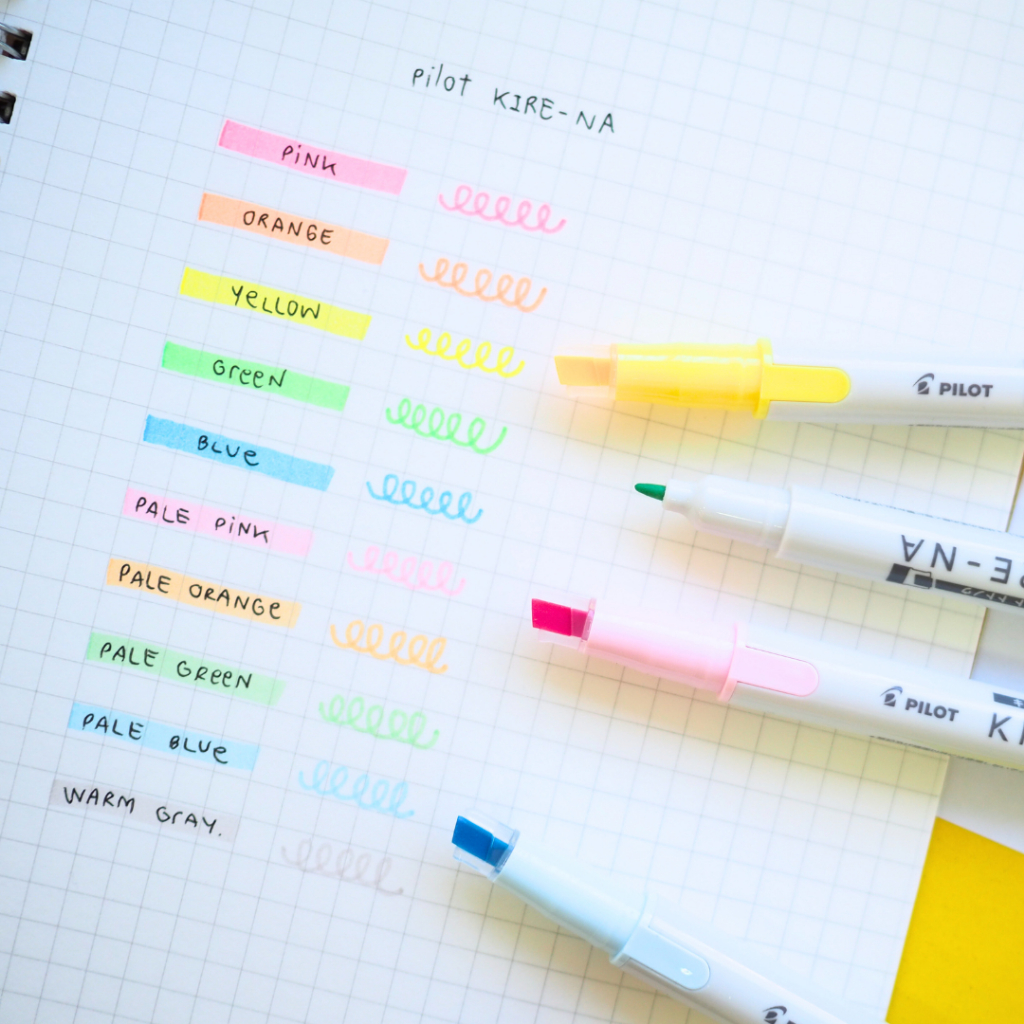 pilot KIRE-NA
PINK
ORANGE
YELLOW
GREEN
BLUE
PALE PINK
PALE ORANGE
PALE GREEN
PALE BLUE
WARM GRAY.
PILOT
E-NA
PILOT
KI